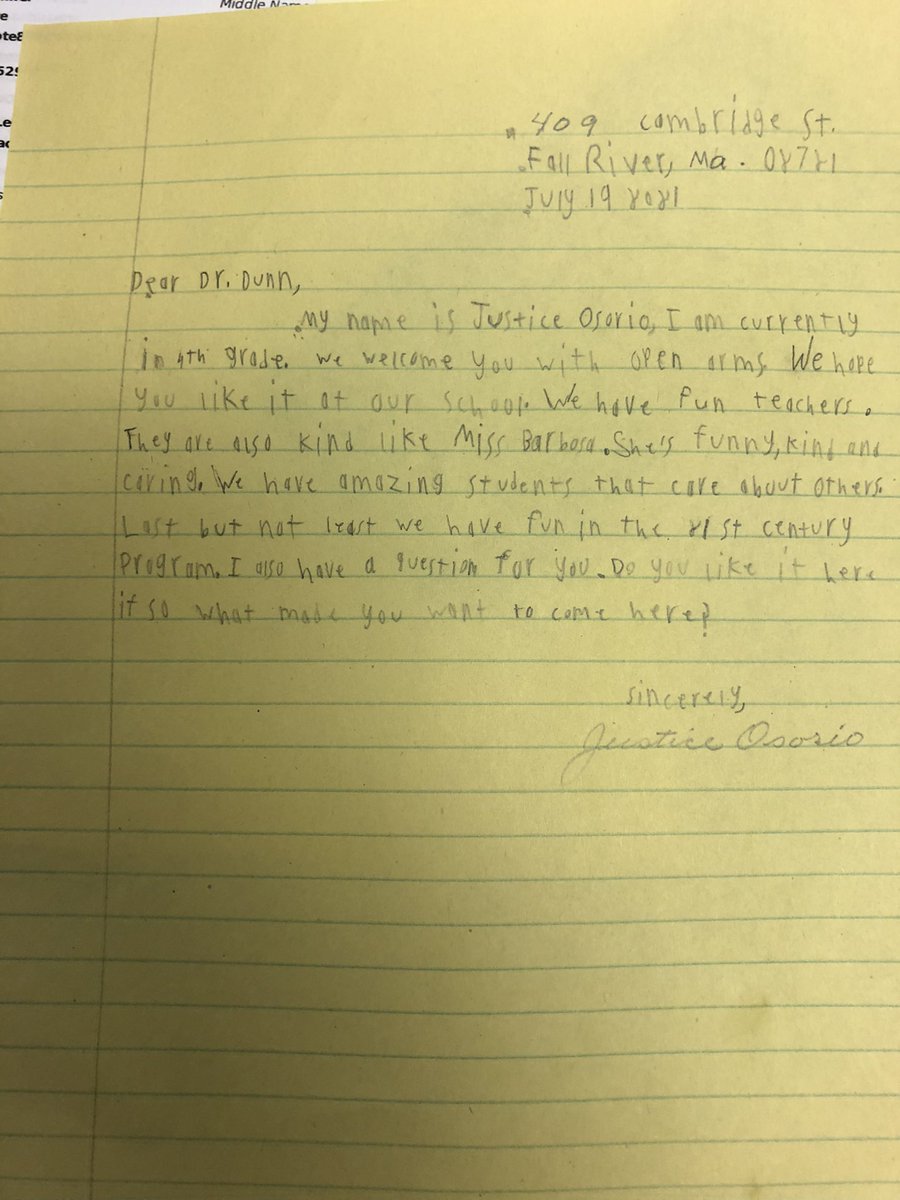 Middle Name
409 Cambridge St.
Fall River, Ma. 02721
July 19 2021
Dear Dr. Dunn,
My name is Justice Osorio, I am currently
in 4th grade. we welcome you with open arms. We hope
you like it at our school. We have fun teachers.
They are also kind like Miss Barbosa. She's funny, kind and
caring. We have amazing students that care about others.
Last but not least we have fun in the 21st century
program. I also have a question for you. Do you like it here
if so what made you want to come here?
sincerely,
Justice Osorio